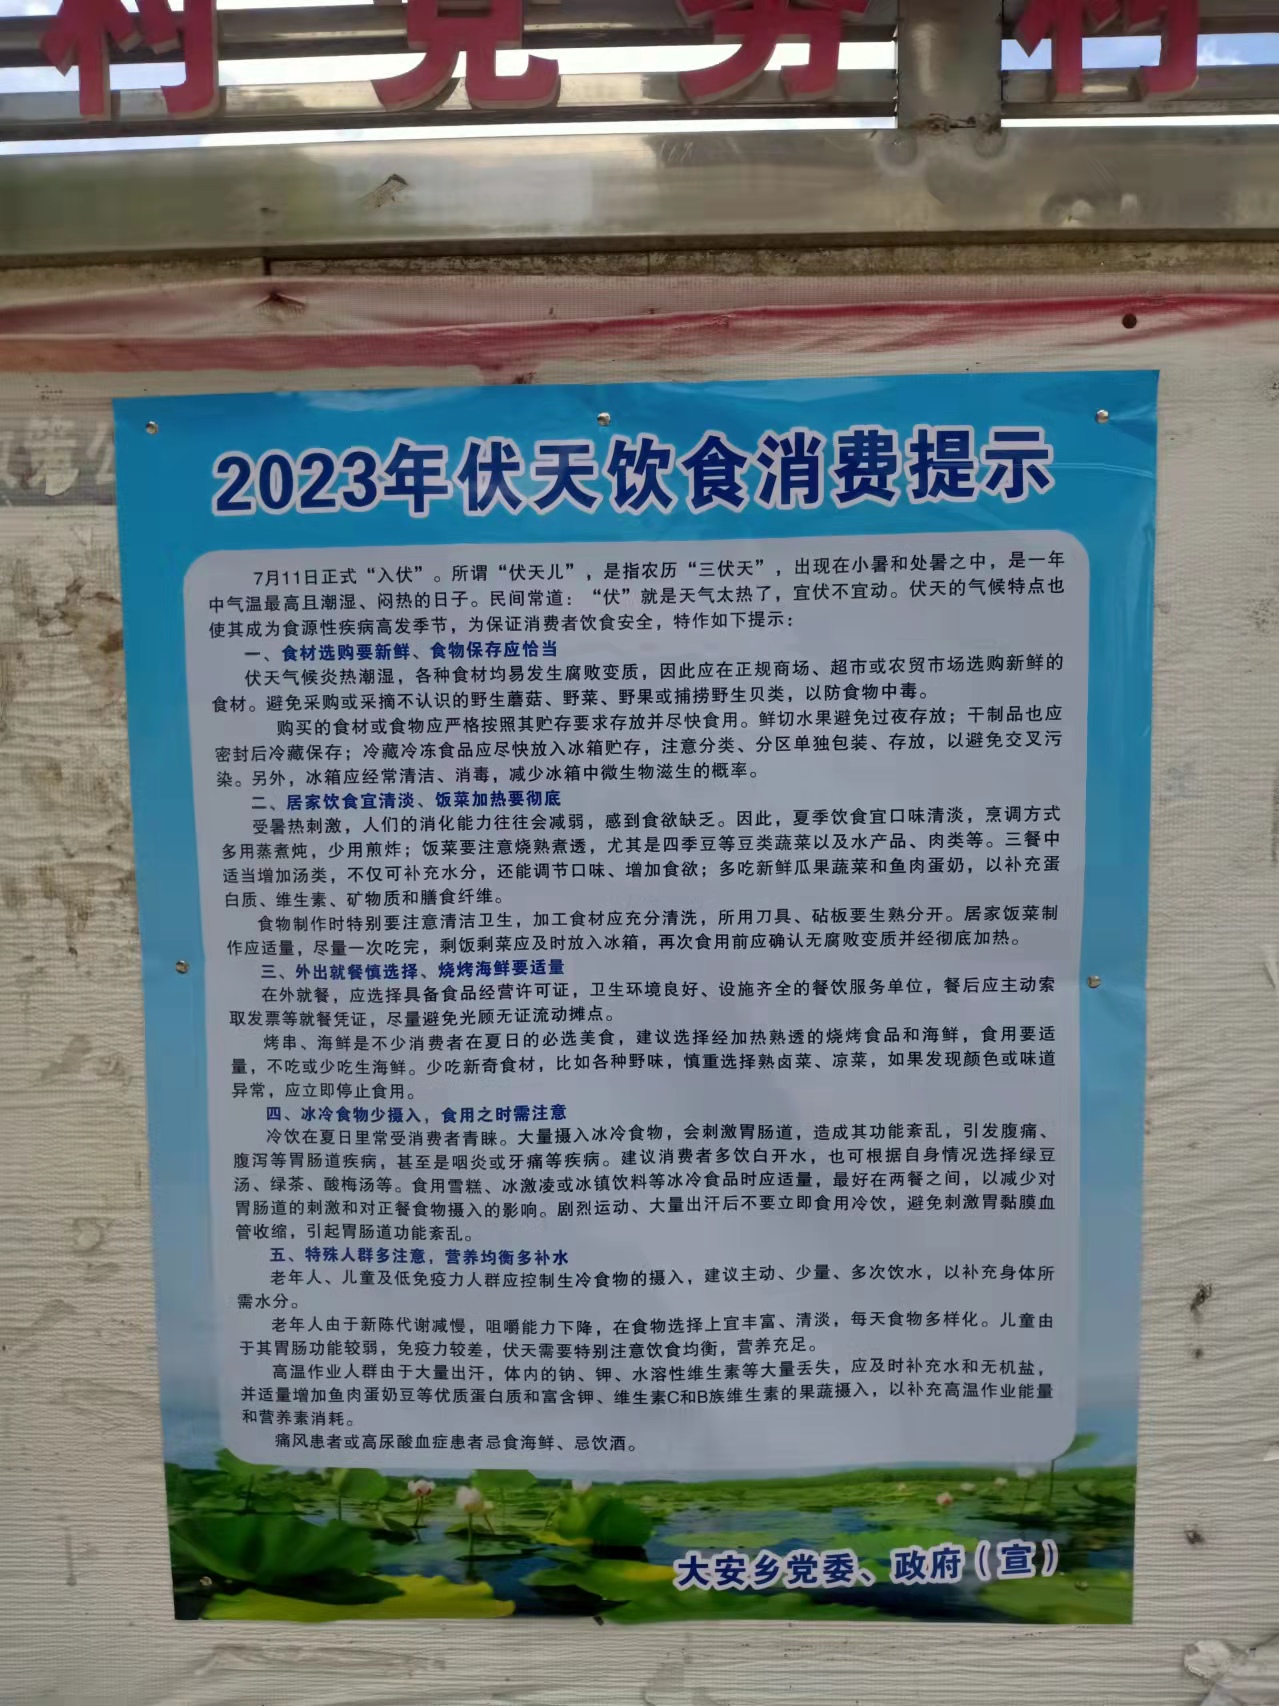 村 党 务 村
2023年伏天饮食消费提示
7月11日正式“入伏”。所谓“伏天儿”，是指农历“三伏天”，出现在小暑和处暑之中，是一年
中气温最高且潮湿、闷热的日子。民间常道：“伏”就是天气太热了，宜伏不宜动。伏天的气候特点也
使其成为食源性疾病高发季节，为保证消费者饮食安全，特作如下提示：
一、食材选购要新鲜、食物保存应恰当
伏天气候炎热潮湿，各种食材均易发生腐败变质，因此应在正规商场、超市或农贸市场选购新鲜的
食材。避免采购或采摘不认识的野生蘑菇、野菜、野果或捕捞野生贝类，以防食物中毒。
购买的食材或食物应严格按照其贮存要求存放并尽快食用。鲜切水果避免过夜存放；干制品也应
密封后冷藏保存；冷藏冷冻食品应尽快放入冰箱贮存，注意分类、分区单独包装、存放，以避免交叉污
染。另外，冰箱应经常清洁、消毒，减少冰箱中微生物滋生的概率。
二、居家饮食宜清淡、饭菜加热要彻底
受暑热刺激，人们的消化能力往往会减弱，感到食欲缺乏。因此，夏季饮食宜口味清淡，烹调方式
多用蒸煮炖，少用煎炸；饭菜要注意烧熟煮透，尤其是四季豆等豆类蔬菜以及水产品、肉类等。三餐中
适当增加汤类，不仅可补充水分，还能调节口味、增加食欲；多吃新鲜瓜果蔬菜和鱼肉蛋奶，以补充蛋
白质、维生素、矿物质和膳食纤维。
食物制作时特别要注意清洁卫生，加工食材应充分清洗，所用刀具、砧板要生熟分开。居家饭菜制
作应适量，尽量一次吃完，剩饭剩菜应及时放入冰箱，再次食用前应确认无腐败变质并经彻底加热。
三、外出就餐慎选择、烧烤海鲜要适量
在外就餐，应选择具备食品经营许可证，卫生环境良好、设施齐全的餐饮服务单位，餐后应主动索
取发票等就餐凭证，尽量避免光顾无证流动摊点。
烤串、海鲜是不少消费者在夏日的必选美食，建议选择经加热熟透的烧烤食品和海鲜，食用要适
量，不吃或少吃生海鲜。少吃新奇食材，比如各种野味，慎重选择熟卤菜、凉菜，如果发现颜色或味道
异常，应立即停止食用。
四、冰冷食物少摄入，食用之时需注意
冷饮在夏日里常受消费者青睐。大量摄入冰冷食物，会刺激胃肠道，造成其功能紊乱，引发腹痛、
腹泻等胃肠道疾病，甚至是咽炎或牙痛等疾病。建议消费者多饮白开水，也可根据自身情况选择绿豆
汤、绿茶、酸梅汤等。食用雪糕、冰激凌或冰镇饮料等冰冷食品时应适量，最好在两餐之间，以减少对
胃肠道的刺激和对正餐食物摄入的影响。剧烈运动、大量出汗后不要立即食用冷饮，避免刺激胃黏膜血
管收缩，引起胃肠道功能紊乱。
五、特殊人群多注意，营养均衡多补水
老年人、儿童及低免疫力人群应控制生冷食物的摄入，建议主动、少量、多次饮水，以补充身体所
需水分。
老年人由于新陈代谢减慢，咀嚼能力下降，在食物选择上宜丰富、清淡，每天食物多样化。儿童由
于其胃肠功能较弱，免疫力较差，伏天需要特别注意饮食均衡，营养充足。
高温作业人群由于大量出汗，体内的钠、钾、水溶性维生素等大量丢失，应及时补充水和无机盐，
并适量增加鱼肉蛋奶豆等优质蛋白质和富含钾、维生素C和B族维生素的果蔬摄入，以补充高温作业能量
和营养素消耗。
痛风患者或高尿酸血症患者忌食海鲜、忌饮酒。
大安乡党委、政府（宣）